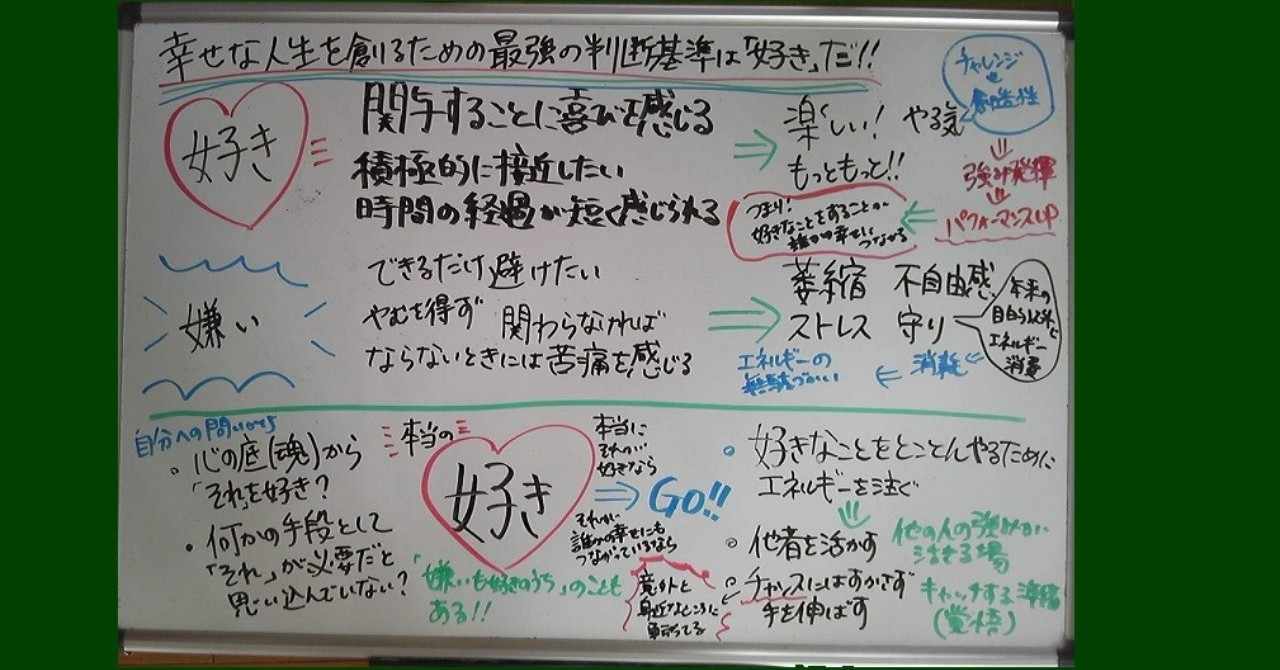 幸せな人生を創るための最強の判断基準は「好き」だ!!
好き
関与することに喜びを感じる
積極的に接近したい
時間の経過が短く感じられる
楽しい! やる気
もっともっと!!
チャレンジ
創造性
強み発揮
パフォーマンスUP
つまり!
好きなことをすることが
誰かの幸せに
つながる
嫌い
できるだけ避けたい
やむを得ず 関わらなければ
ならないときには苦痛を感じる
萎縮 不自由感
ストレス 守り
本来の
自分以外で
エネルギー
消費
消耗
エネルギーの
無駄づかい
自分への問いかけ
・心の底(魂)から
「それ」を好き?
・何かの手段として
「それ」が必要だと
思い込んでいない?
本当の
好き
本当に
それが
好きなら
Go!!
それが
誰かの幸せにも
つながっているなら
「嫌いも好きのうち」のことも
ある!!
好きなことをとことんやるために
エネルギーを注ぐ
他者を活かす
他の人の強みが
活きる場
チャンスにはすかさず
手を伸ばす
キャッチする準備
(覚悟)
意外と
身近なところに
転ってる